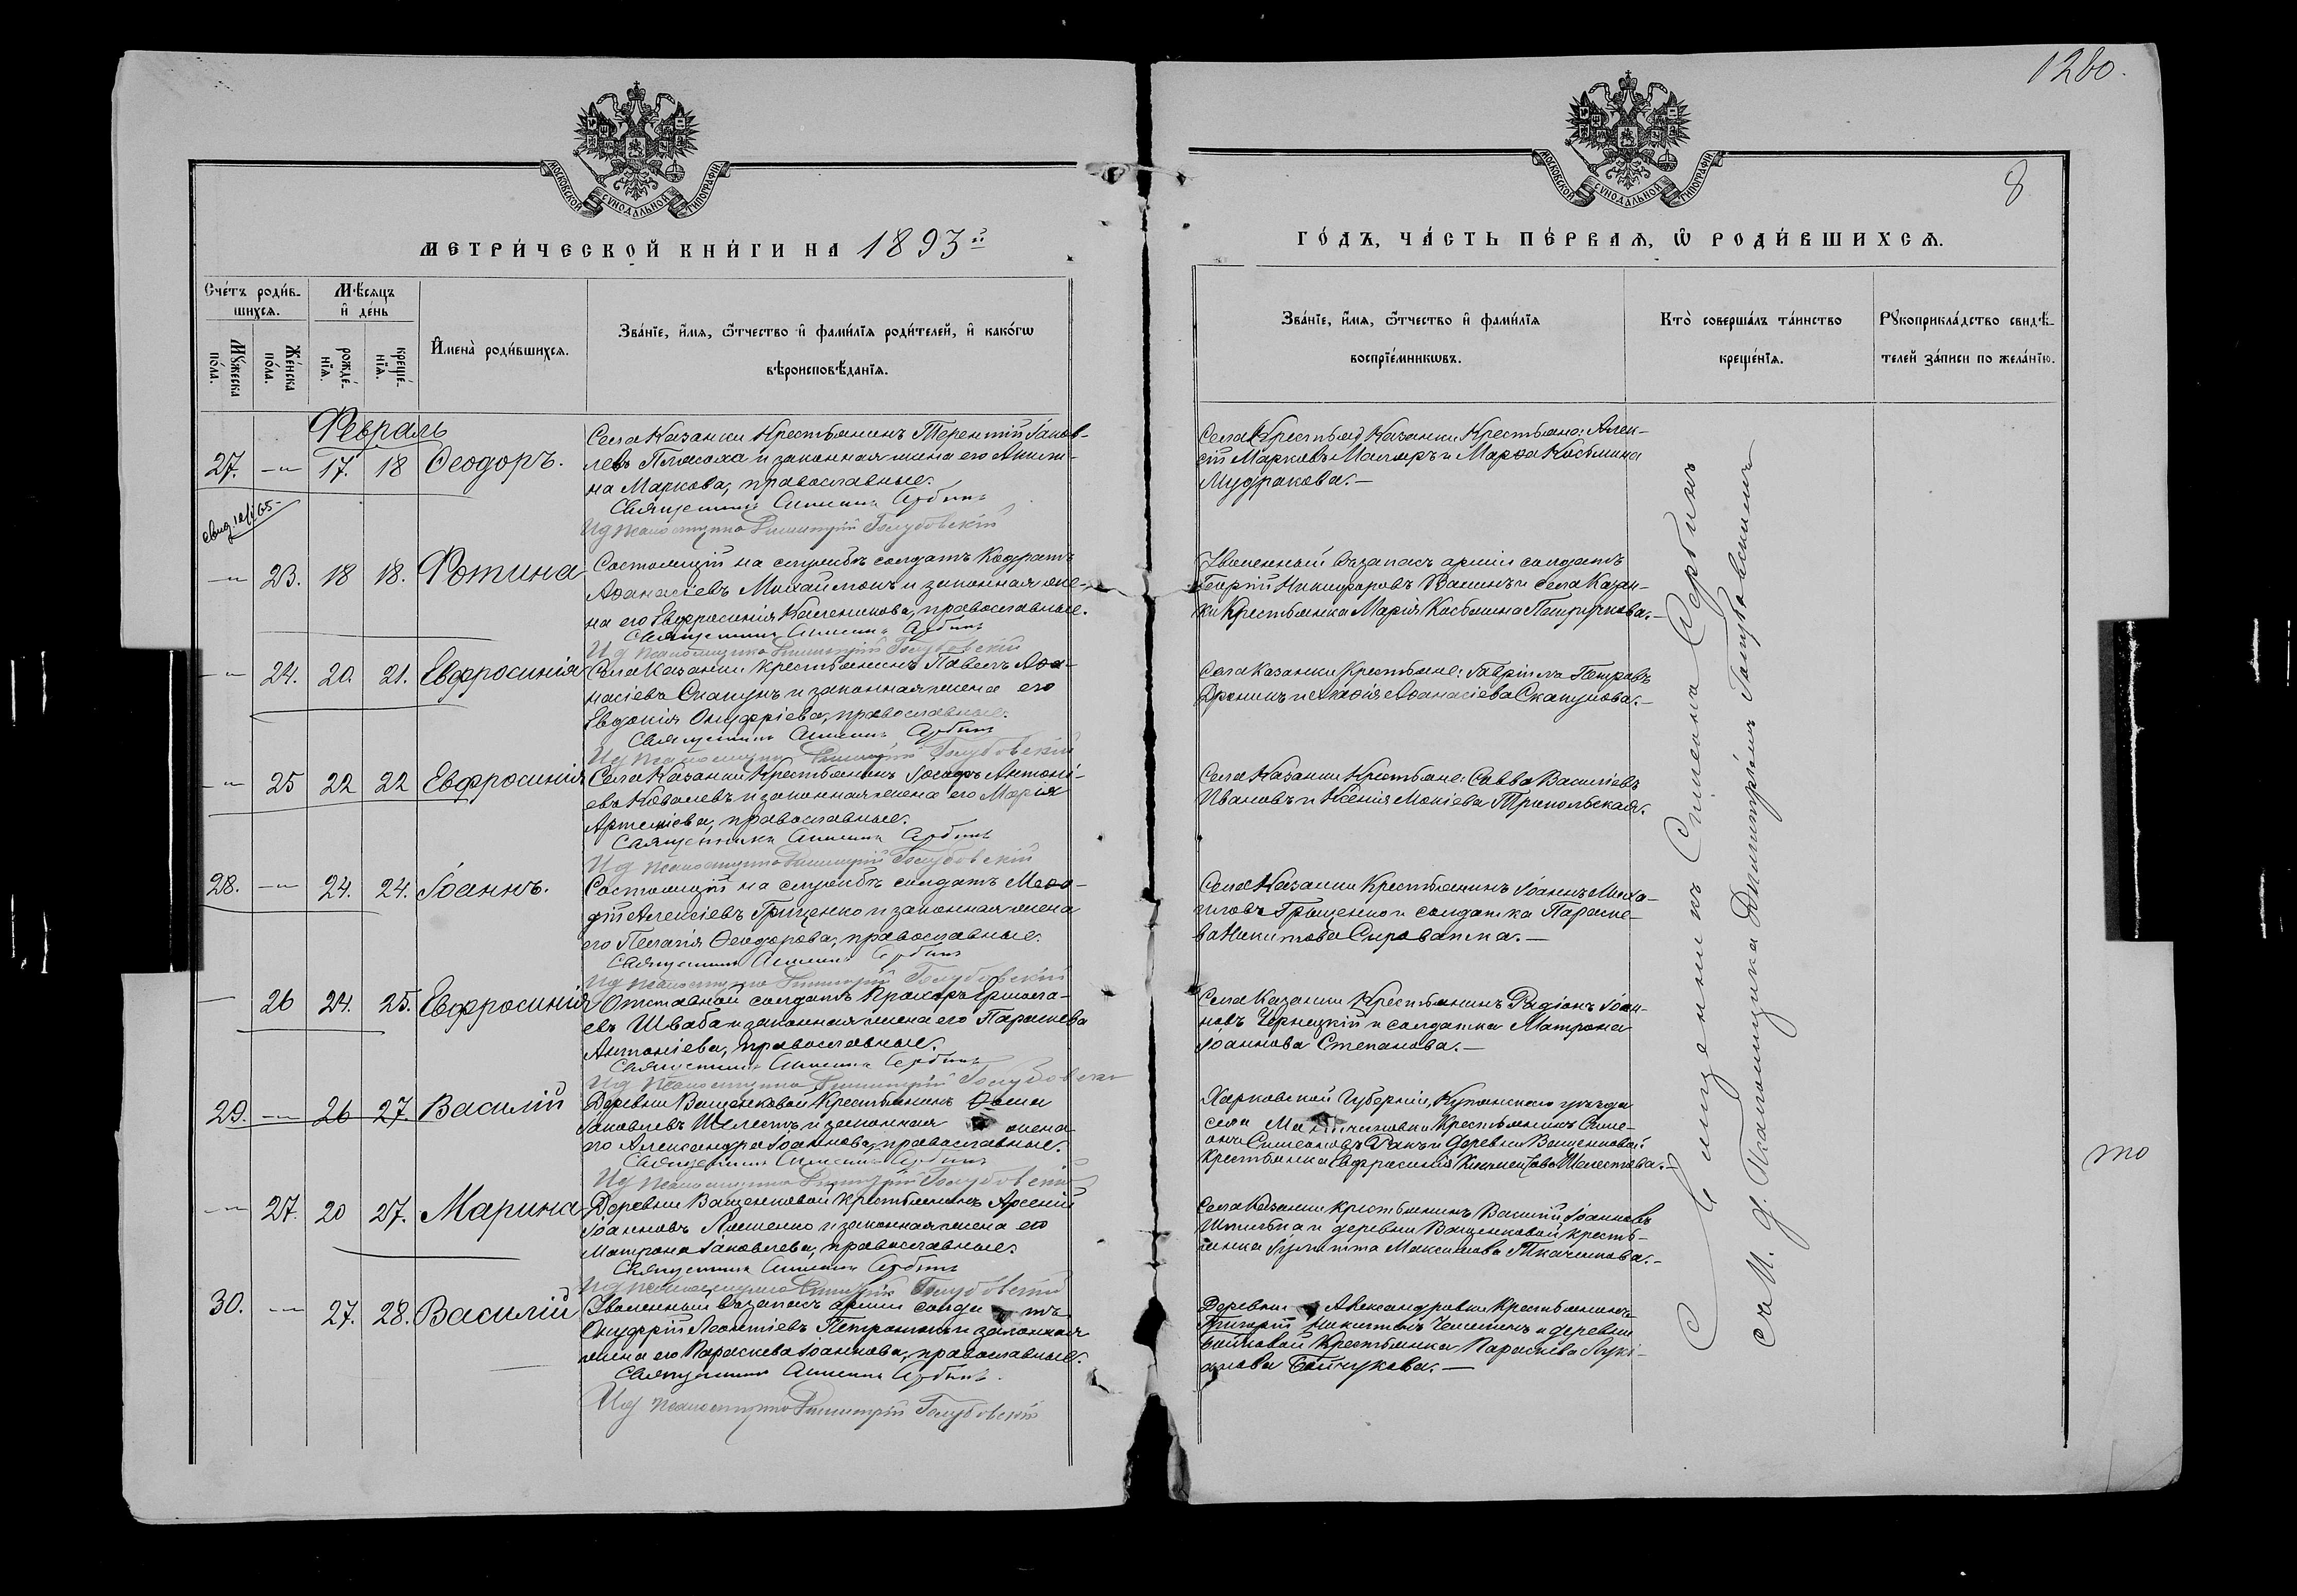 1260.
8
МОСКОВСКОЙ СѴНОДАЛЬНОЙ ТИПОГРАФІИ
МОСКОВСКОЙ СѴНОДАЛЬНОЙ ТИПОГРАФІИ
МЕТРИ́ЧЕСКОЙ КНИ́ГИ НА 1893й
ГО́ДЪ, ЧА́СТЬ ПЕ́РВАѦ, Ѽ РОДИ́ВШИХСѦ.
Сче́тъ роди́в-
шихсѧ.
Мꙋ́жеска по́ла.
Же́нска по́ла.
Мѣ́сѧцъ и҆ де́нь
рожде́-
нїѧ.
креще́-
нїѧ.
И҆мена̀ роди́вшихсѧ.
Зва́нїе, и҆́мѧ, ѻ҆́тчество и҆ фами́лїѧ роди́телей, и҆ како́гѡ
вѣроисповѣ́данїѧ.
Зва́нїе, и҆́мѧ, ѻ҆́тчество и҆ фами́лїѧ
воспрїе́мникѡвъ.
Кто̀ соверша́лъ та́инство
креще́нїѧ.
Рꙋкоприкла́дство свидѣ́-
телей за́писи по жела́нїю.
Февраль
27. —"— 17. 18 Ѳеодоръ.
Села Казанки Крестьянинъ Терентій Іаков-
левъ и законная жена его
на Маркова, православные.
Священникъ Симеонъ Сербинъ
Ид псаломщика Димитрій Голубовскій
Села Казанки Крестьяне: Алек-
сій Марковъ и Марѳа Косьмина
Мудракова.—
—"— 23. 18 18. Фотина
Состоящій на службѣ солдатъ Кодратъ
Аѳанасіевъ и законная же-
на его Евфросинія православные.
Священникъ Симеонъ Сербинъ
Ид псаломщика Димитрій Голубовскій
Уволенный въ запасъ арміи солдатъ
Георгій Никифоровъ и села Казан-
ки Крестьянка Марія Косьмина
—"— 24. 20. 21. Евфросинія
Села Казанки крестьянинъ Павелъ Аѳа-
насіевъ Скапунъ и законная жена его
Евдокія Онуфріева, православные.
Священникъ Симеонъ Сербинъ
Ид псаломщика Димитрій Голубовскій
Села Казанки Крестьяне: Гавріилъ Петровъ
Аѳанасіева Скапунова.—
—"— 25 22 22 Евфросинія
Села Казанки Крестьянинъ Антоні-
евъ Ковалевъ и законная жена его Марія
православные.
Священникъ Симеонъ Сербинъ
Ид псаломщика Димитрій Голубовскій
Села Казанки Крестьяне: Савва Василіевъ
Ивановъ и Ксенія Мокіева Трипольская.
28. —"— 24. 24. Іоаннъ.
Состоящій на службѣ солдатъ Меѳо-
дій Алексіевъ Грищенко и законная жена
его Пелагія Ѳеодорова, православные.
Священникъ Симеонъ Сербинъ
Ид псаломщика Димитрій Голубовскій
Села Казанки Крестьянинъ Іоаннъ Миха-
иловъ Грищенко и солдатка Параске-
ва Никитова Сироватка.—
— 26 24. 25. Евфросинія
Отставной солдатъ Ермола-
евъ Шваба и законная жена его Параскева
Антоніева, православные.
Священникъ Симеонъ Сербинъ
Ид псаломщика Димитрій Голубовскій
Села Казанки Крестьянинъ Родіонъ Іоан-
новъ Чернецкій и солдатка Матрона
Іоаннова Степанова.—
29. —"— 26 27. Василій
Деревни Ващенковой Крестьянинъ Ѳома
Іаковлевъ Шелестъ и законная жена
его Александра Іоаннова, православные.
Священникъ Симеонъ Сербинъ
Ид псаломщика Димитрій Голубовскій
Харковской Губерніи, Купянскаго уѣзда
села Крестьянинъ Симе-
онъ Симеоновъ и деревни Ващенковой
Крестьянка Евфросинія Шелестова.—
—"— 27. 20 27. Марина
Деревни Ващенковой крестьянинъ Арсеній
Іоанновъ Ляшенко и законная жена его
Матрона Іаковлева, православные.
Священникъ Симеонъ Сербинъ
Ид псаломщика Димитрій Голубовскій
Села Казанки крестьянинъ Василій Іоанновъ
и деревни Ващенковой кресть-
янка Іулитта Максимова Ткаченкова.—
30. —"— 27. 28. Василій
Уволенный въ запасъ арміи солдатъ
Онуфрій Леонтіевъ и законная
жена его Параскева Іоаннова, православные.
Священникъ Симеонъ Сербинъ
Ид псаломщика Димитрій Голубовскій
Деревни Александровки Крестьянинъ
Григорій Никитинъ и деревни
Бойковой Крестьянка Параскева Луки-
анова Бойчукова.—
Священникъ Симеонъ Сербинъ
съ И. д. Псаломщика Димитріемъ Голубовскимъ
то